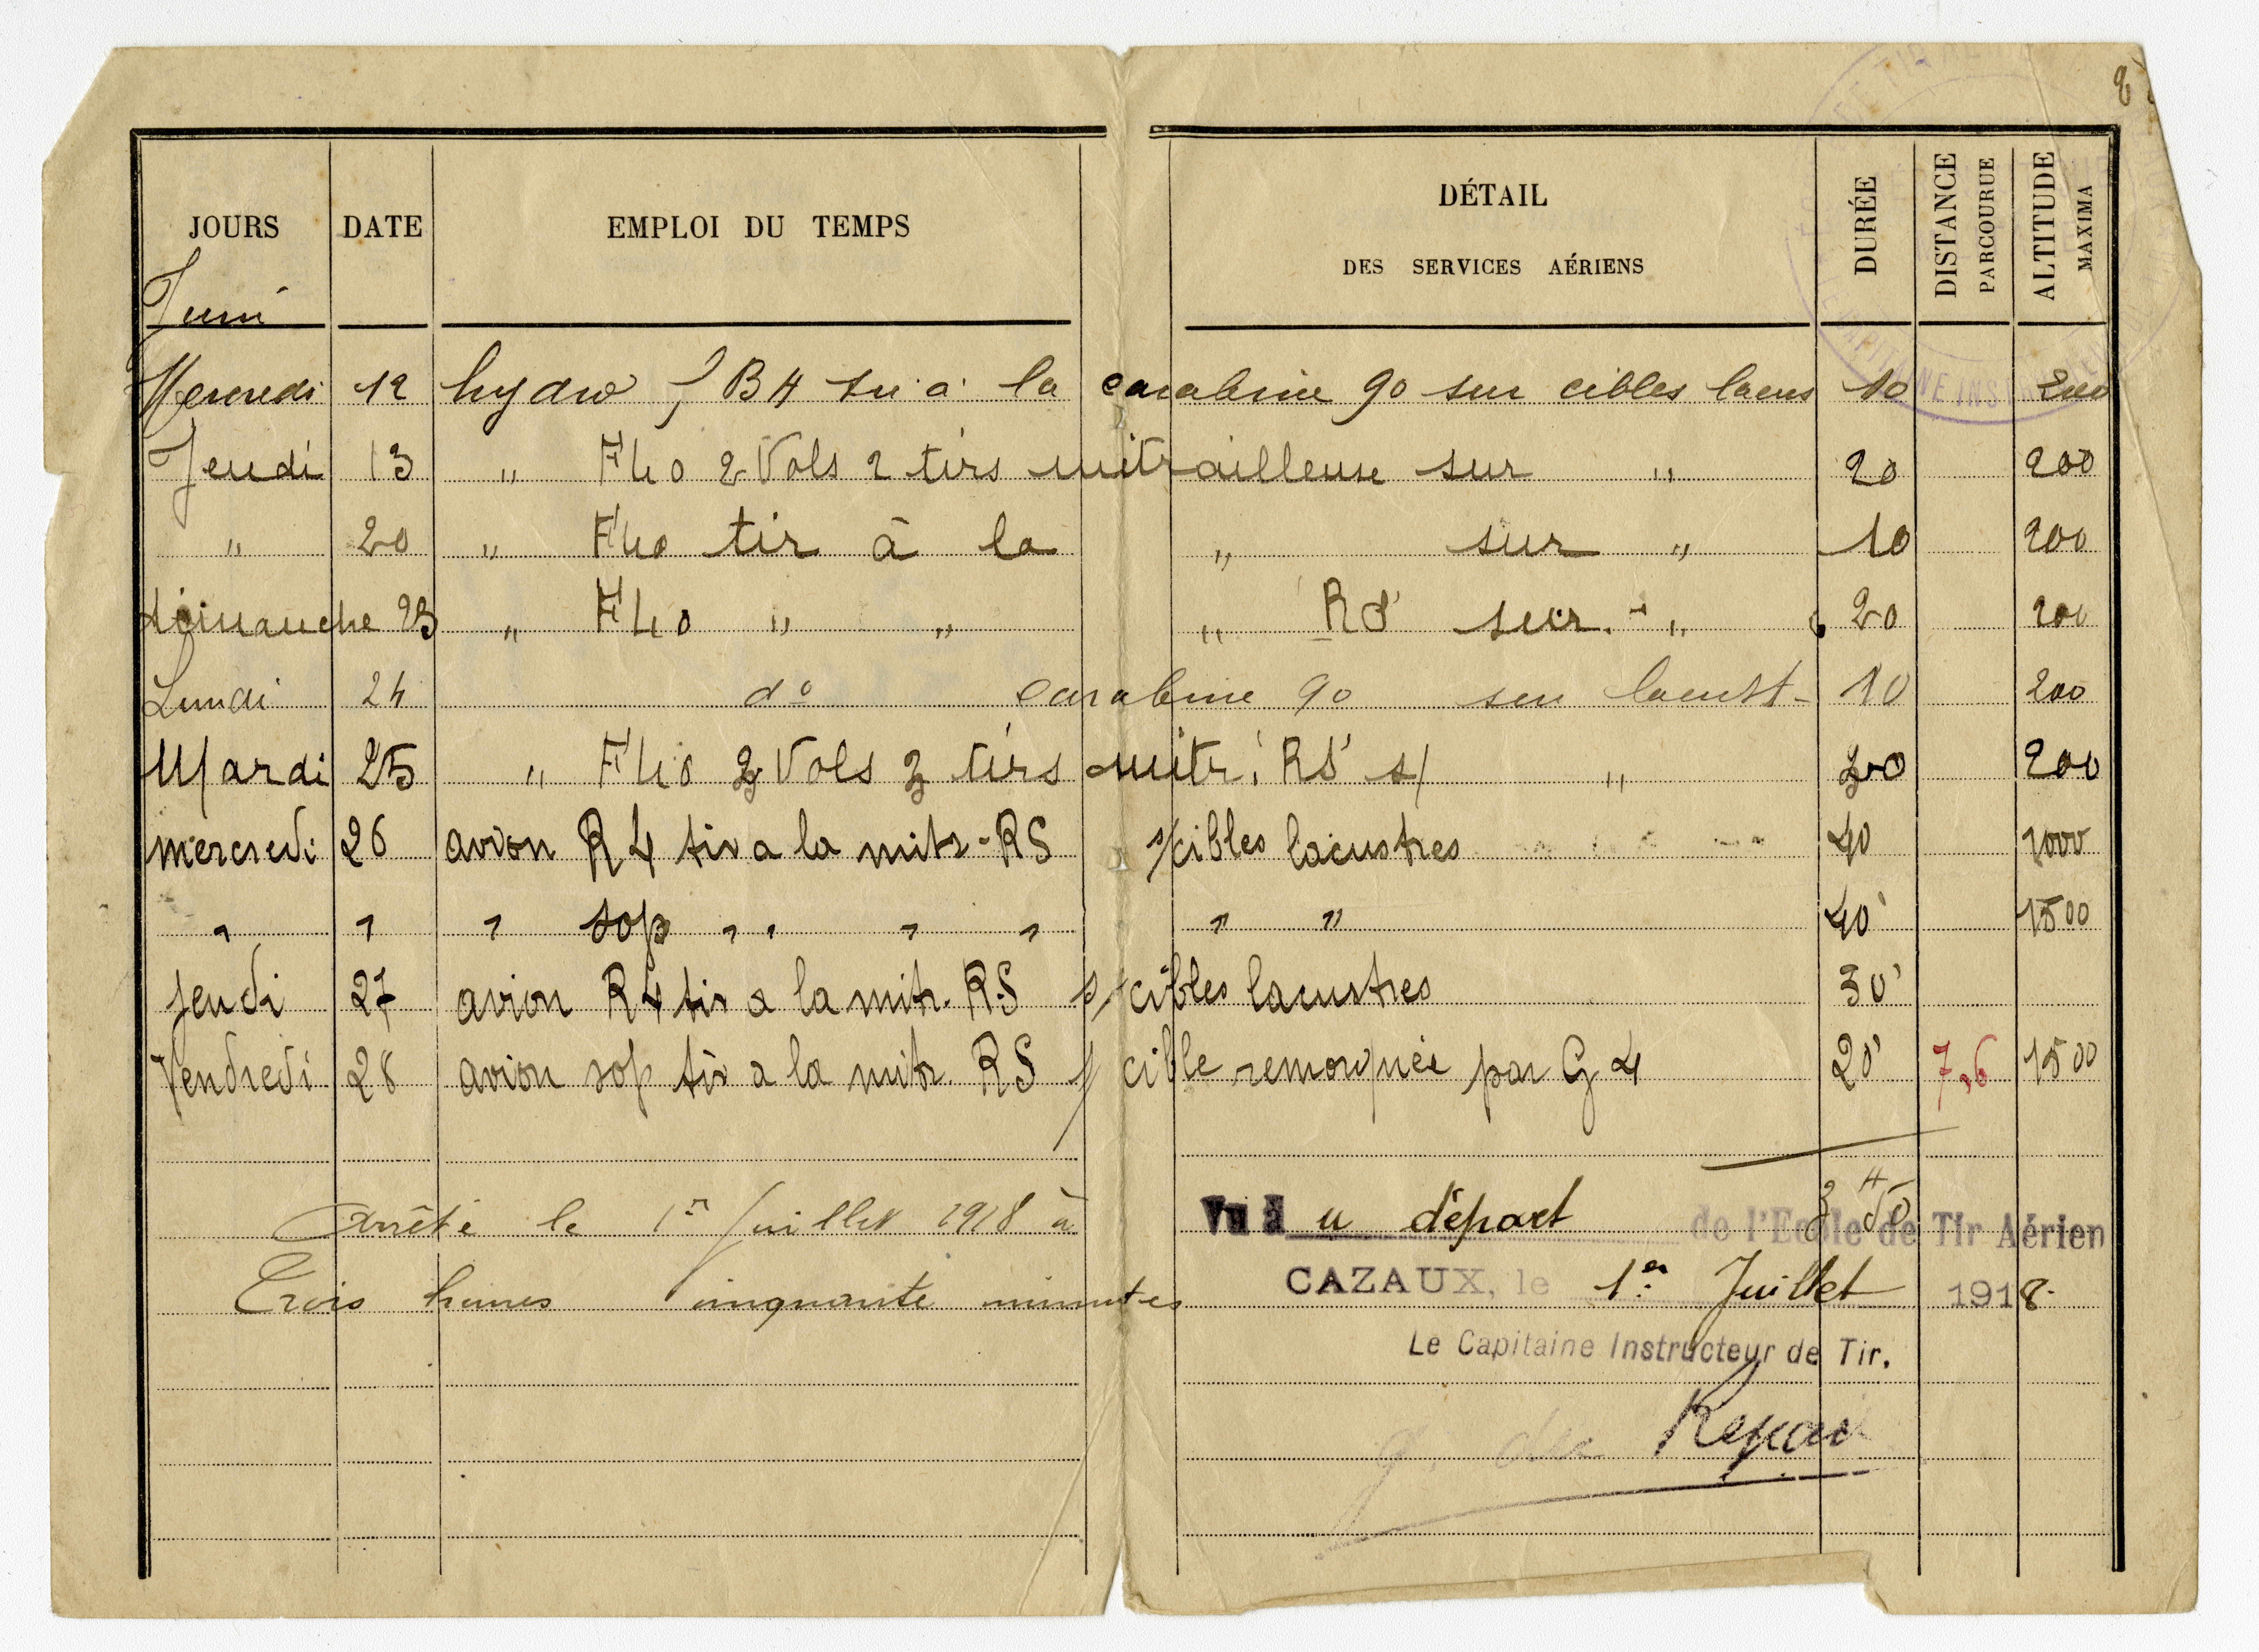 JOURS DATE EMPLOI DU TEMPS DÉTAIL DES SERVICES AÉRIENS DURÉE DISTANCE PARCOURUE ALTITUDE MAXIMA
Juin
Mercredi 12 hydro B4 tir à la carabine 90 sur cibles lacus 10 200
Jeudi 13 " F40 2 Vols 2 tirs mitrailleuse sur " 20 200
" 20 " F40 tir à la " sur " 10 200
dimanche 23 " F40 " " " RS sur " 20 200
Lundi 24 d° " carabine 90 sur lacust- 10 200
Mardi 25 " F40 3 Vols 3 tirs mitr. RS s/ " 30 200
mercredi 26 avion R4 tir a la mitr-RS s/cibles lacustres 40 1000
" " " sop " " " " " " 40' 1500
jeudi 27 avion R4 tir a la mitr. RS s/cibles lacustres 30'
Vendredi 28 avion sop tir a la mitr. RS s/ cible remorquée par G4 20' 7,6 1500
Arrêté le 1er Juillet 1918 à
Trois heures cinquante minutes
3 H 50
Vu à u départ de l'Ecole de Tir Aérien
CAZAUX, le 1er Juillet 1918.
Le Capitaine Instructeur de Tir.